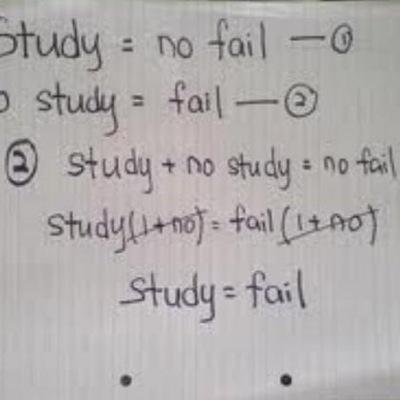 Study = no fail — ①
study = fail — ②
② study + no study = no fail
study(1+no) = fail (1+no)
study = fail